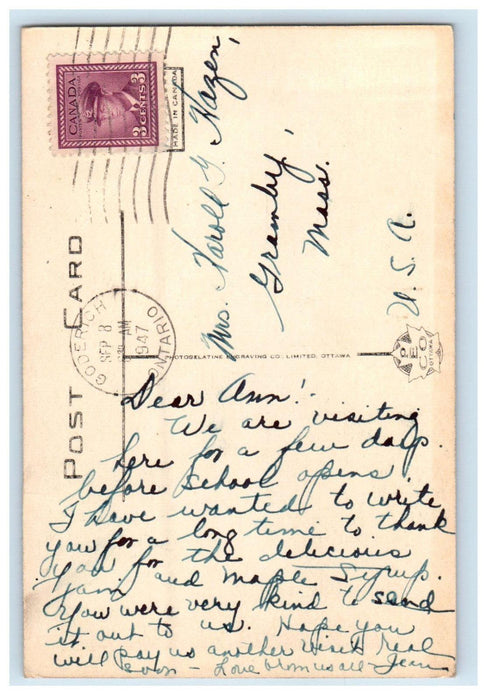 CANADA
3 CENTS 3
MADE IN CANADA
Mrs. Harold G. Hazen,
Granby,
Mass.
U.S.A.
POST CARD
GODERICH
SEP 8
AM
1947
ONTARIO
PHOTOGELATINE ENGRAVING CO., LIMITED, OTTAWA
PECO
OTTAWA
Dear Ann!
We are visiting
here for a few days
before school opens.
I have wanted to write
you for a long time to thank
you for the delicious
jam and maple syrup.
You were very kind to send
it out to us. Hope you
will pay us another visit real
soon - Love from us all - Jean